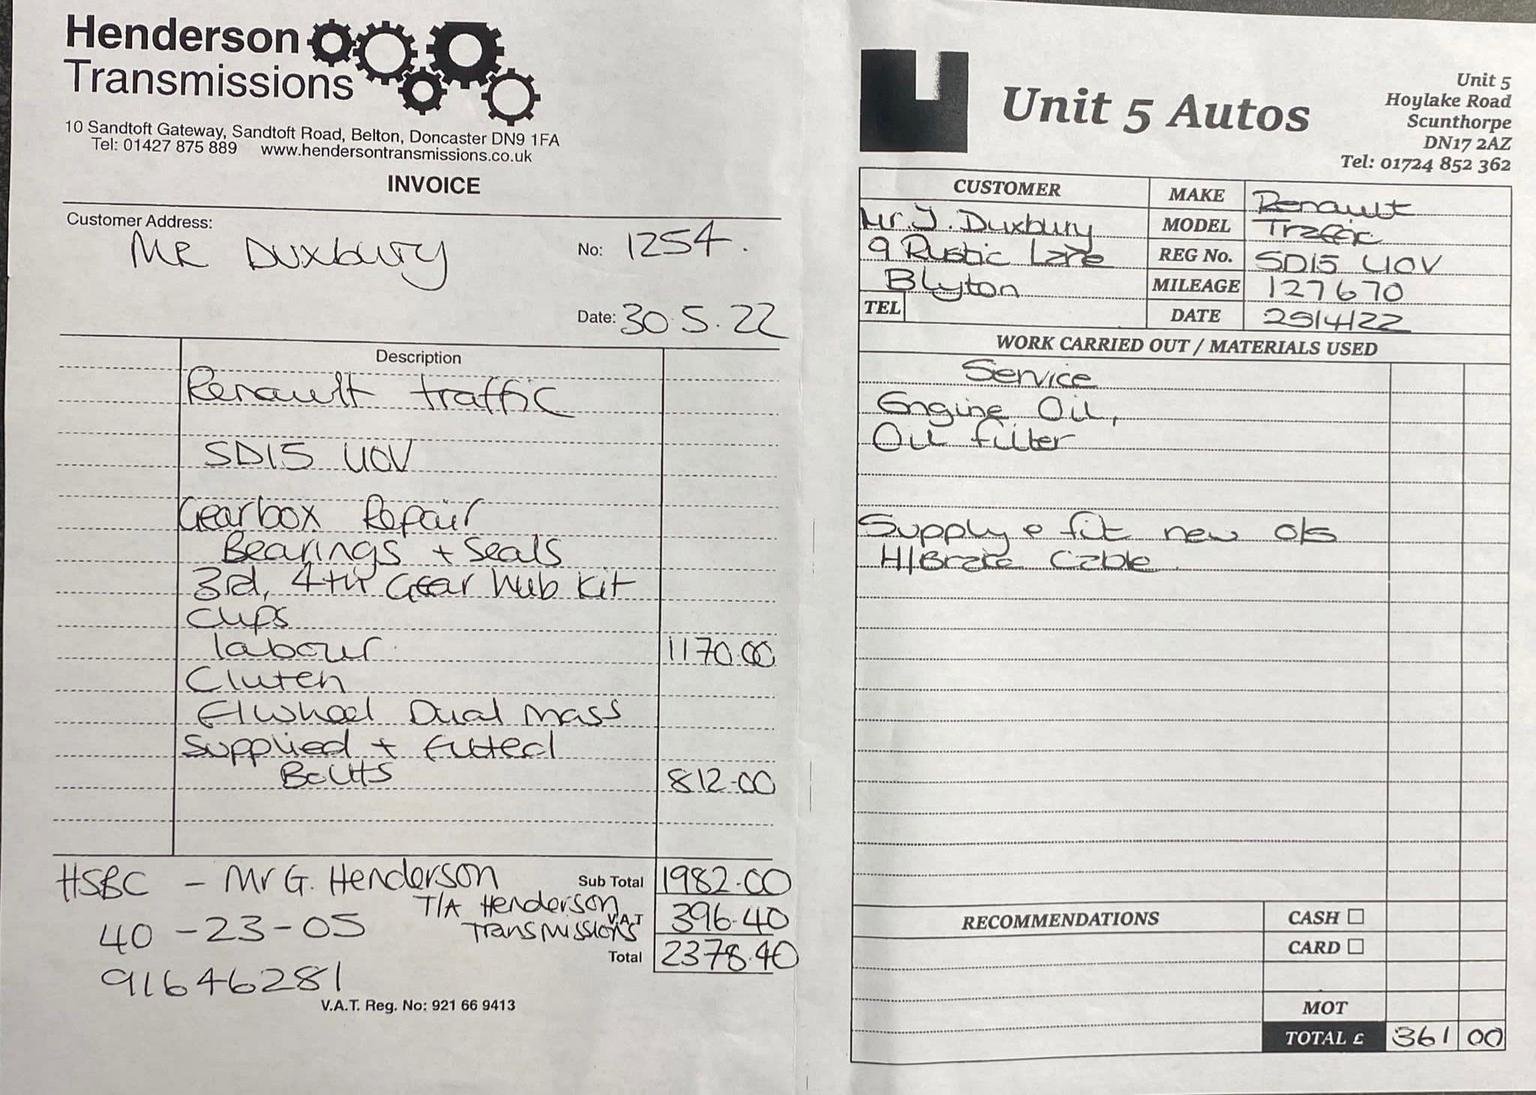 Henderson
Transmissions
10 Sandtoft Gateway, Sandtoft Road, Belton, Doncaster DN9 1FA
Tel: 01427 875 889 www.hendersontransmissions.co.uk
INVOICE
Customer Address:
MR Duxbury
No: 1254.
Date: 30.5.22
Description
Renault traffic
SD15 UOV
Gearbox Repair
Bearings + Seals
3rd, 4th Gear Hub Kit
Clips
labour 1170.00
Clutch
Flwheel Dual Mass
Supplied + fitted
Bolts 812.00
HSBC - Mr G. Henderson
T/A Henderson
Transmissions
40-23-05
91646281
Sub Total 1982.00
V.A.T 396.40
Total 2378.40
V.A.T. Reg. No: 921 66 9413
Unit 5 Autos
Unit 5
Hoylake Road
Scunthorpe
DN17 2AZ
Tel: 01724 852 362
CUSTOMER
Mr. J. Duxbury
9 Rustic Lane
Blyton
TEL
MAKE Renault
MODEL Traffic
REG No. SD15 UOV
MILEAGE 127670
DATE 29/4/22
WORK CARRIED OUT / MATERIALS USED
Service
Engine Oil,
Oil filter
Supply & fit new o/s
H/Brake Cable
RECOMMENDATIONS
CASH
CARD
MOT
TOTAL £ 361 00